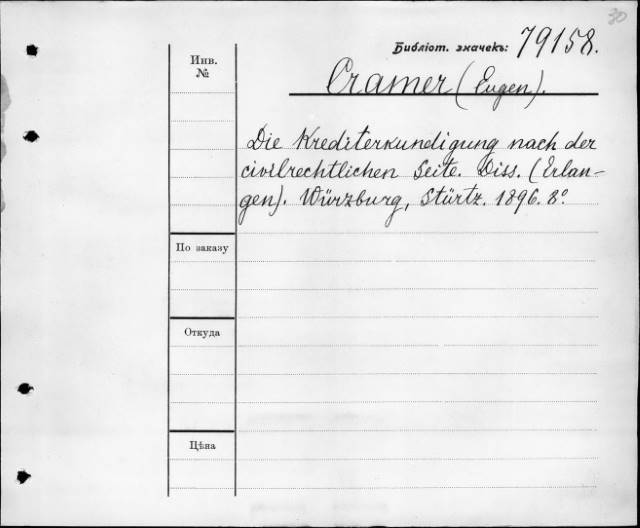 30
Библіот. значекъ: 79158.
Инв.
№
Cramer (Eugen).
Die Krediterkundigung nach der
civilrechtlichen Seite. Diss. (Erlan-
gen). Würzburg, Stürtz. 1896. 8º.
По заказу
Откуда
Цѣна